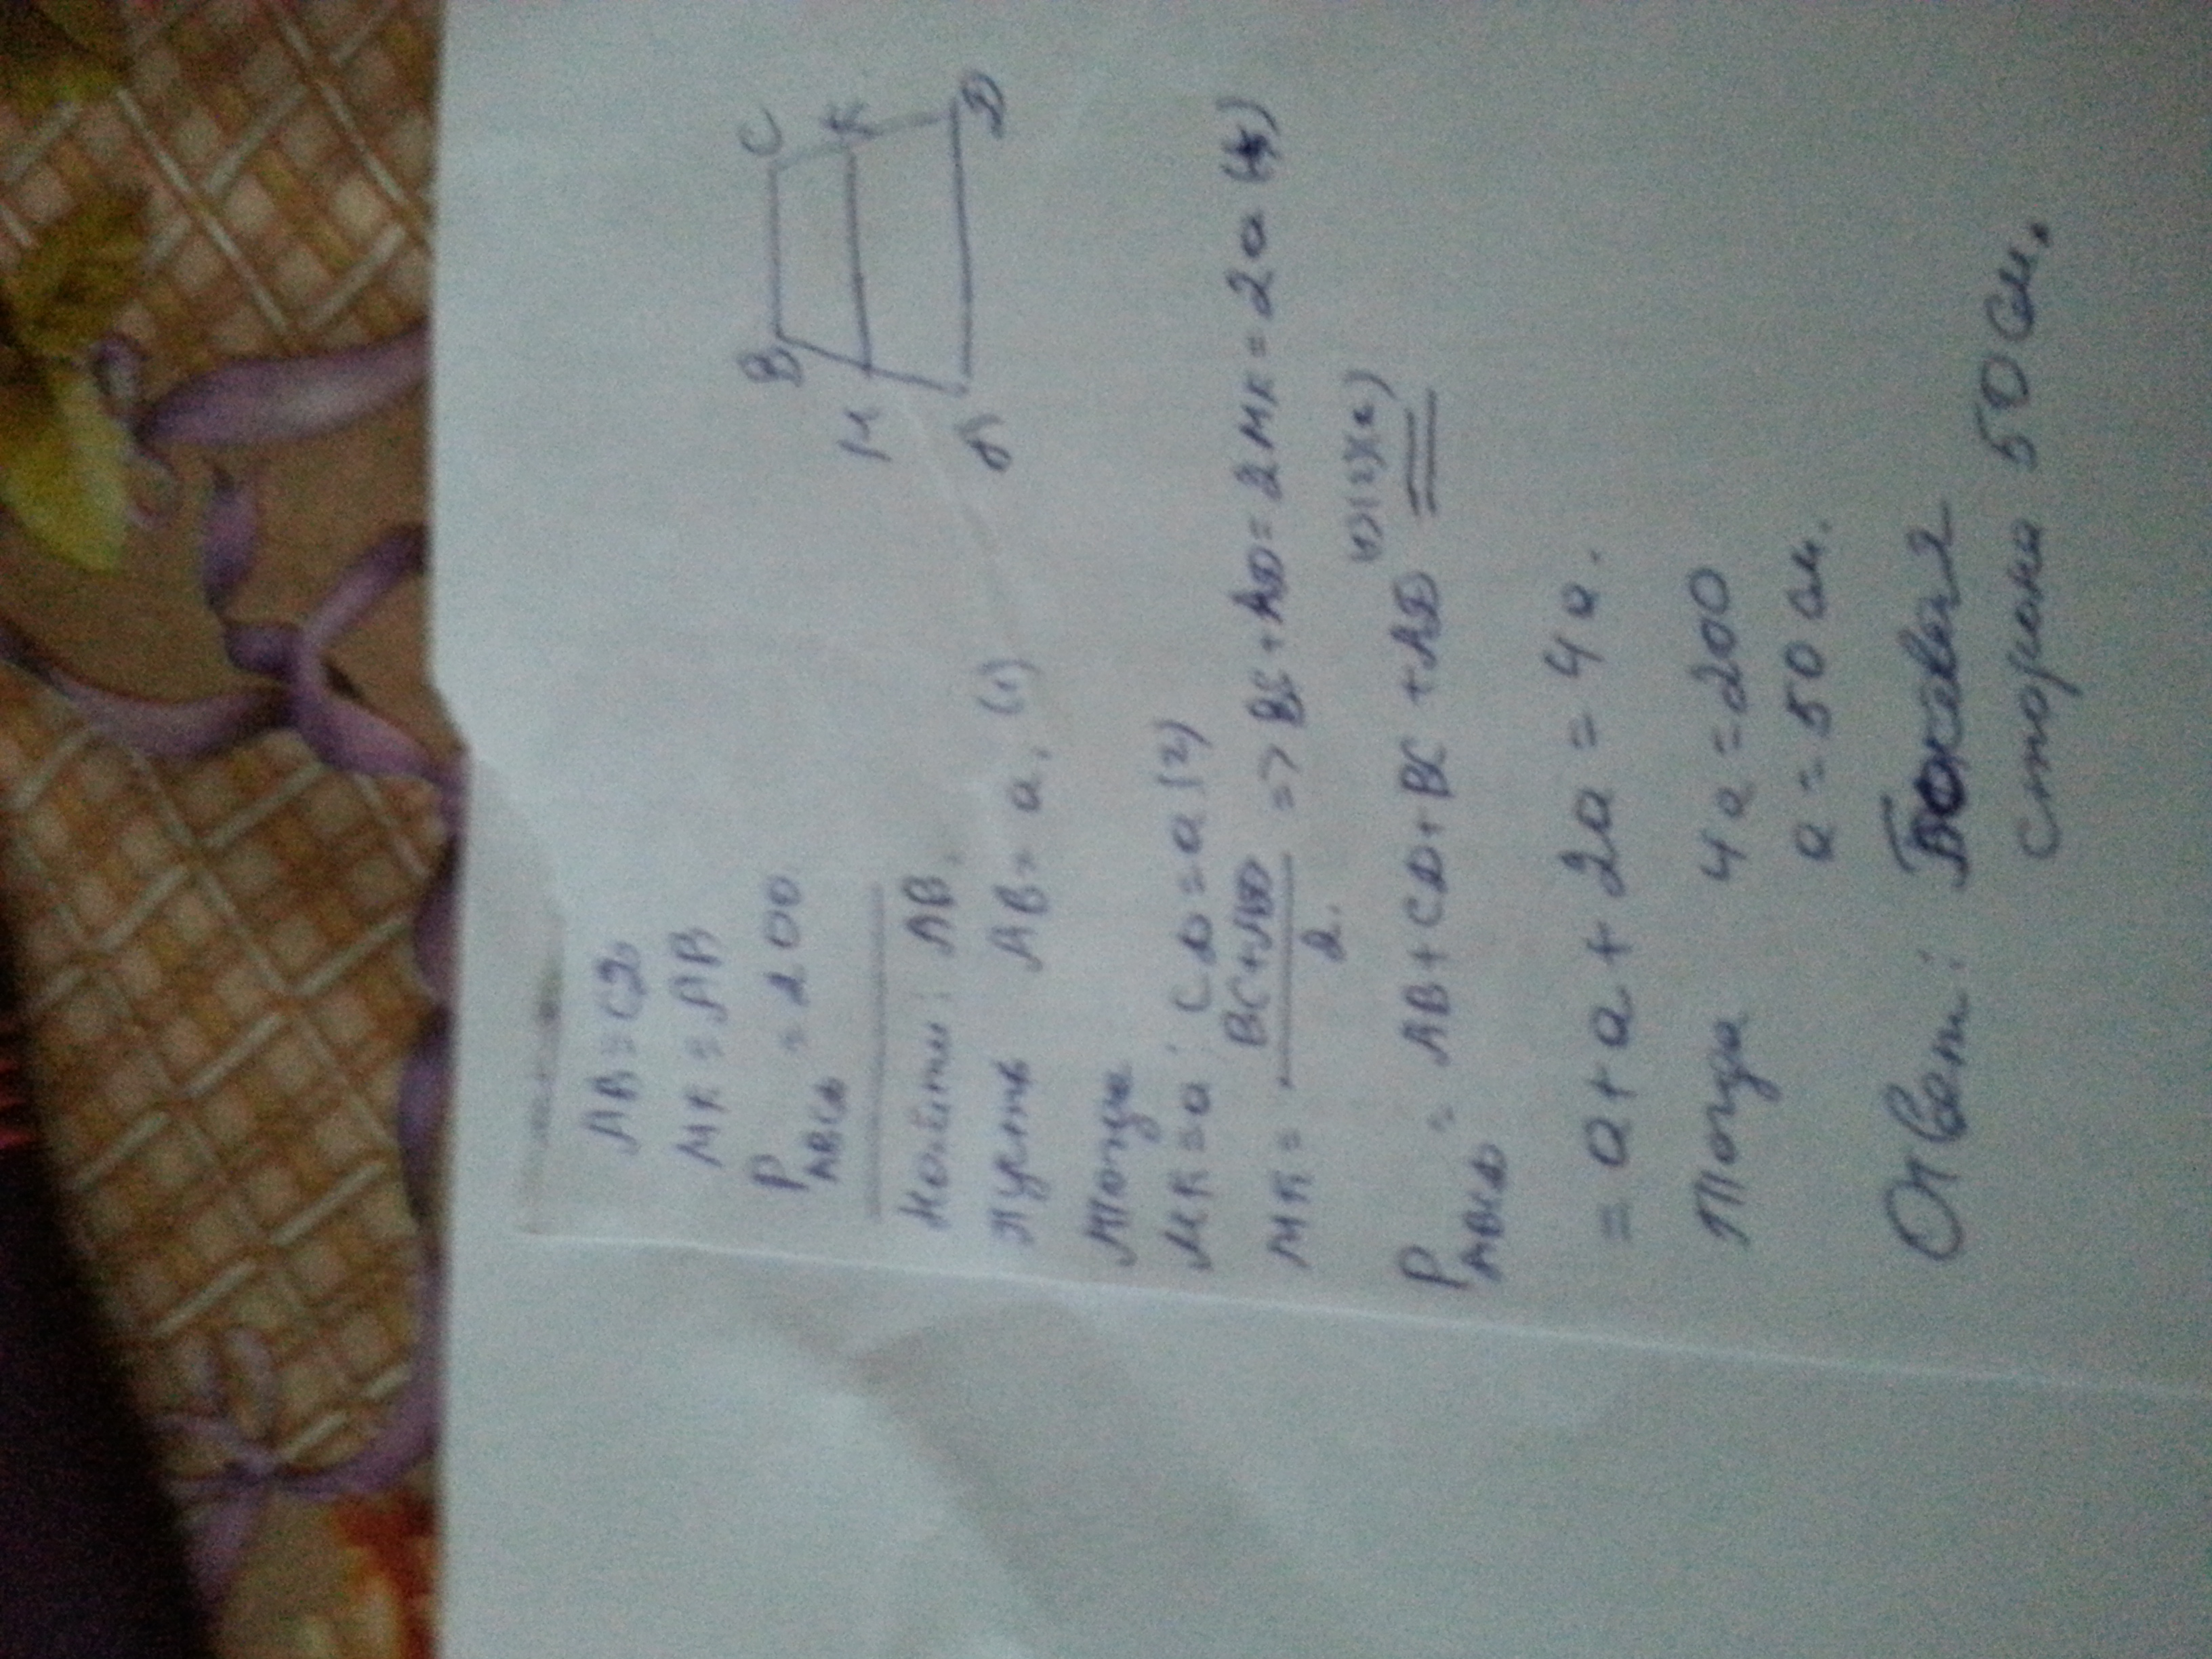 AB = CD
MK = AB
P ABCD = 200
B C
M K
A D
Найти: AB.
Пусть AB = a. (1)
Тогда
MK = a; CD = a (2)
MK = BC + AD / 2 => BC + AD = 2MK = 2a (3)
P ABCD = AB + CD + BC + AD =
= a + a + 2a = 4a.
Тогда 4a = 200
a = 50 см.
Ответ: Боковая
сторона 50 см.